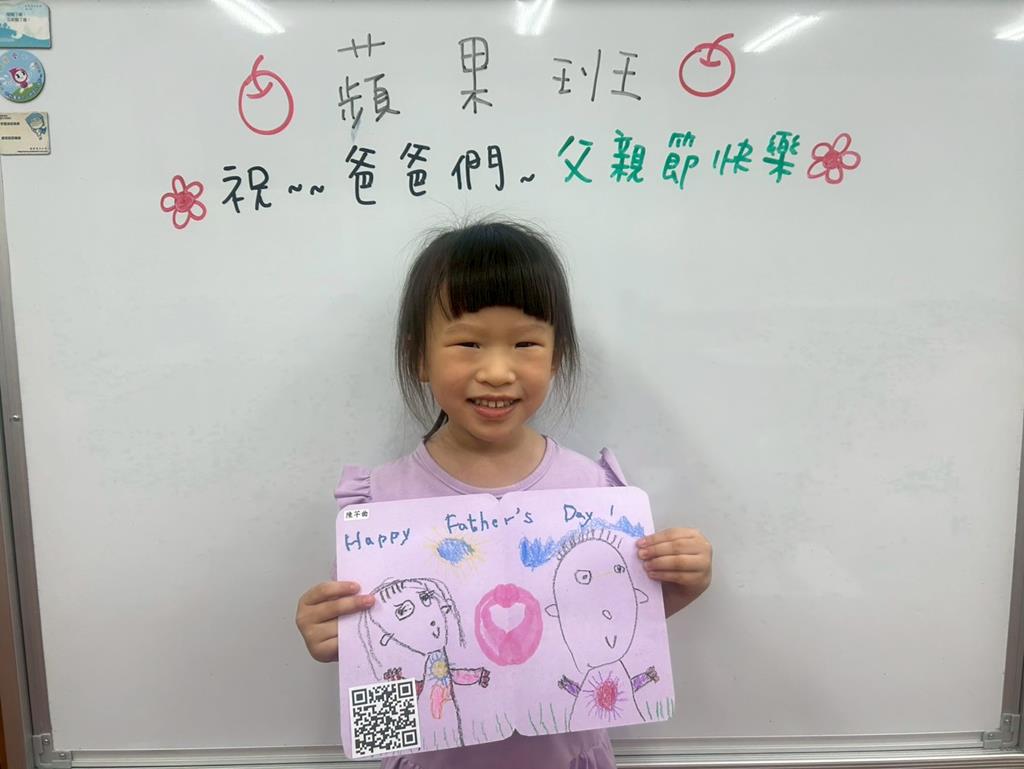 蘋果班
祝~~爸爸們~父親節快樂
Happy Father's Day!